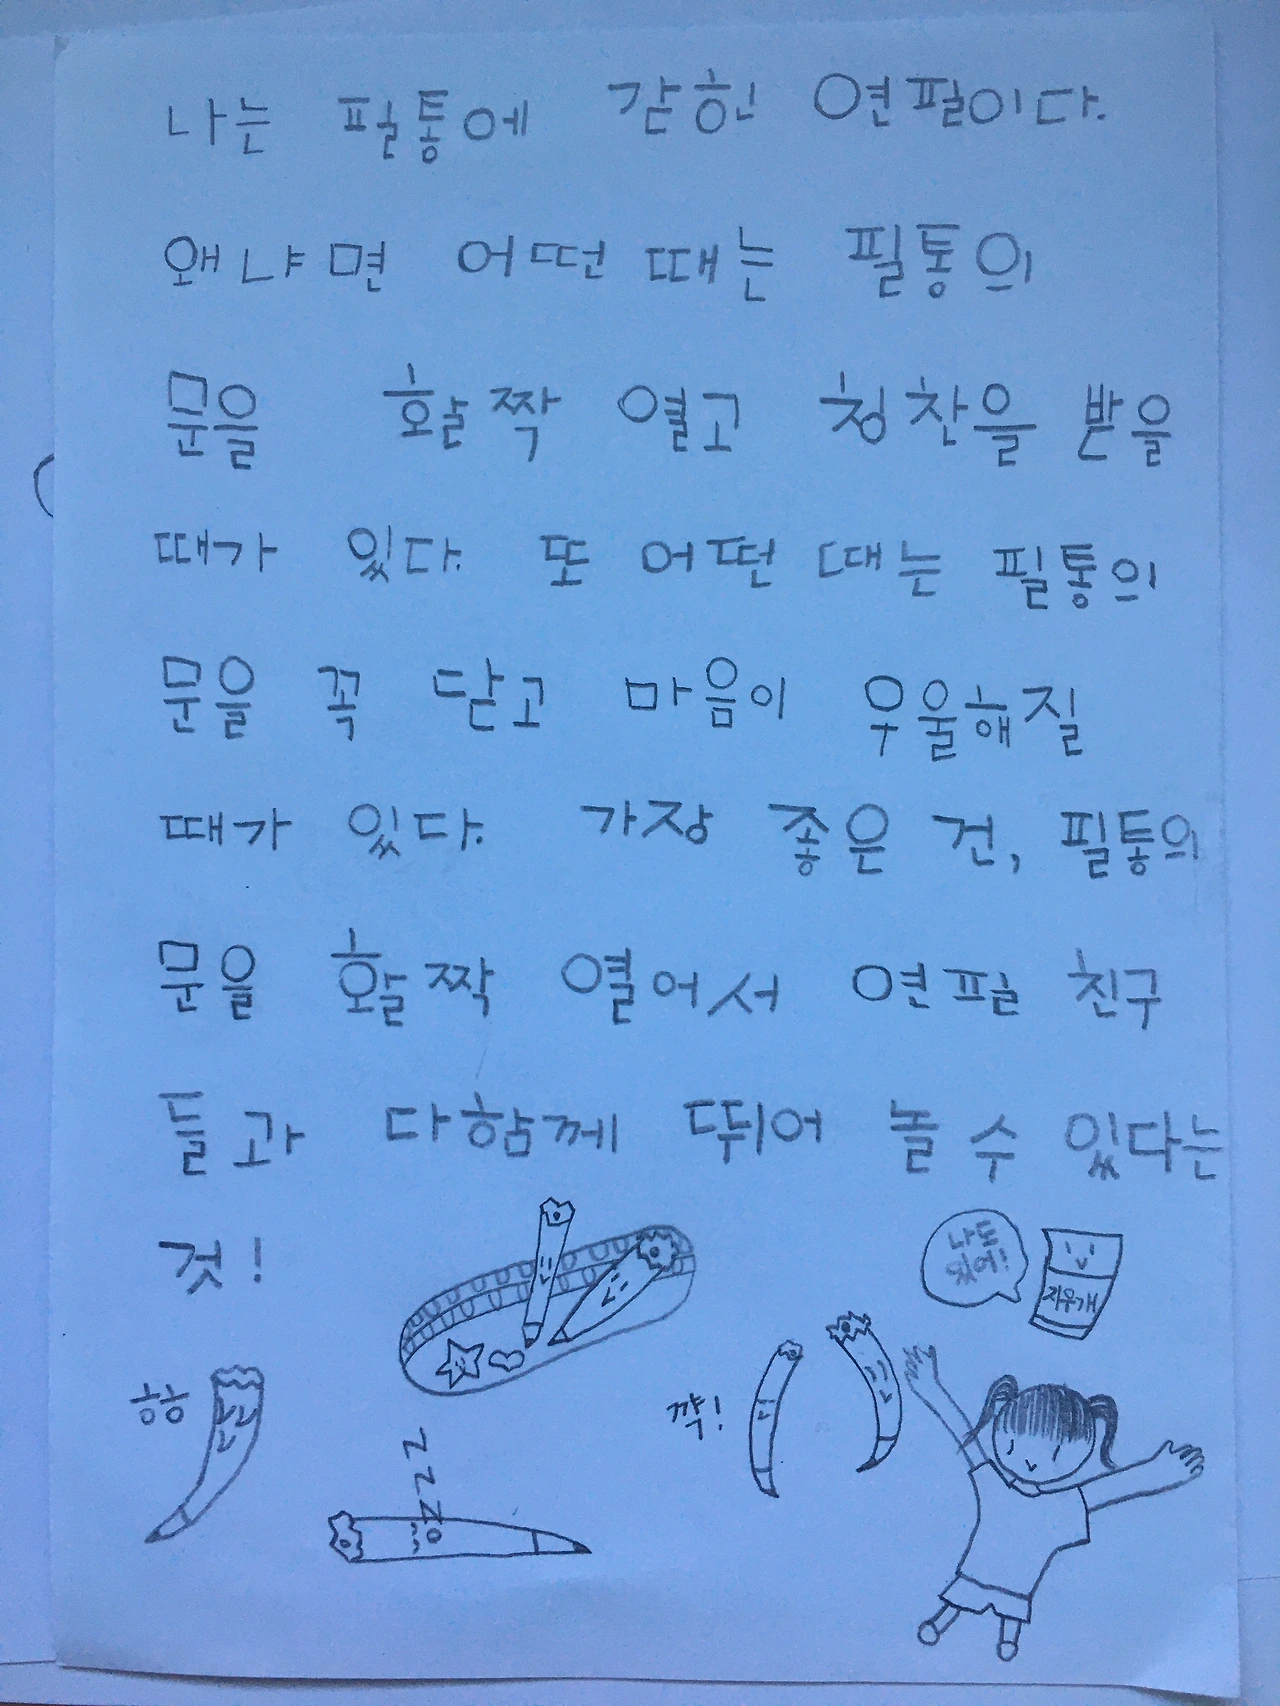 나는 필통에 갇힌 연필이다.
왜냐면 어떤 때는 필통의
문을 활짝 열고 칭찬을 받을
때가 있다. 또 어떤 때는 필통의
문을 꼭 닫고 마음이 우울해질
때가 있다. 가장 좋은 건, 필통의
문을 활짝 열어서 연필 친구
들과 다함께 뛰어 놀 수 있다는
것!
나도
있어!
지우개
하하
꺅!
ZZZ